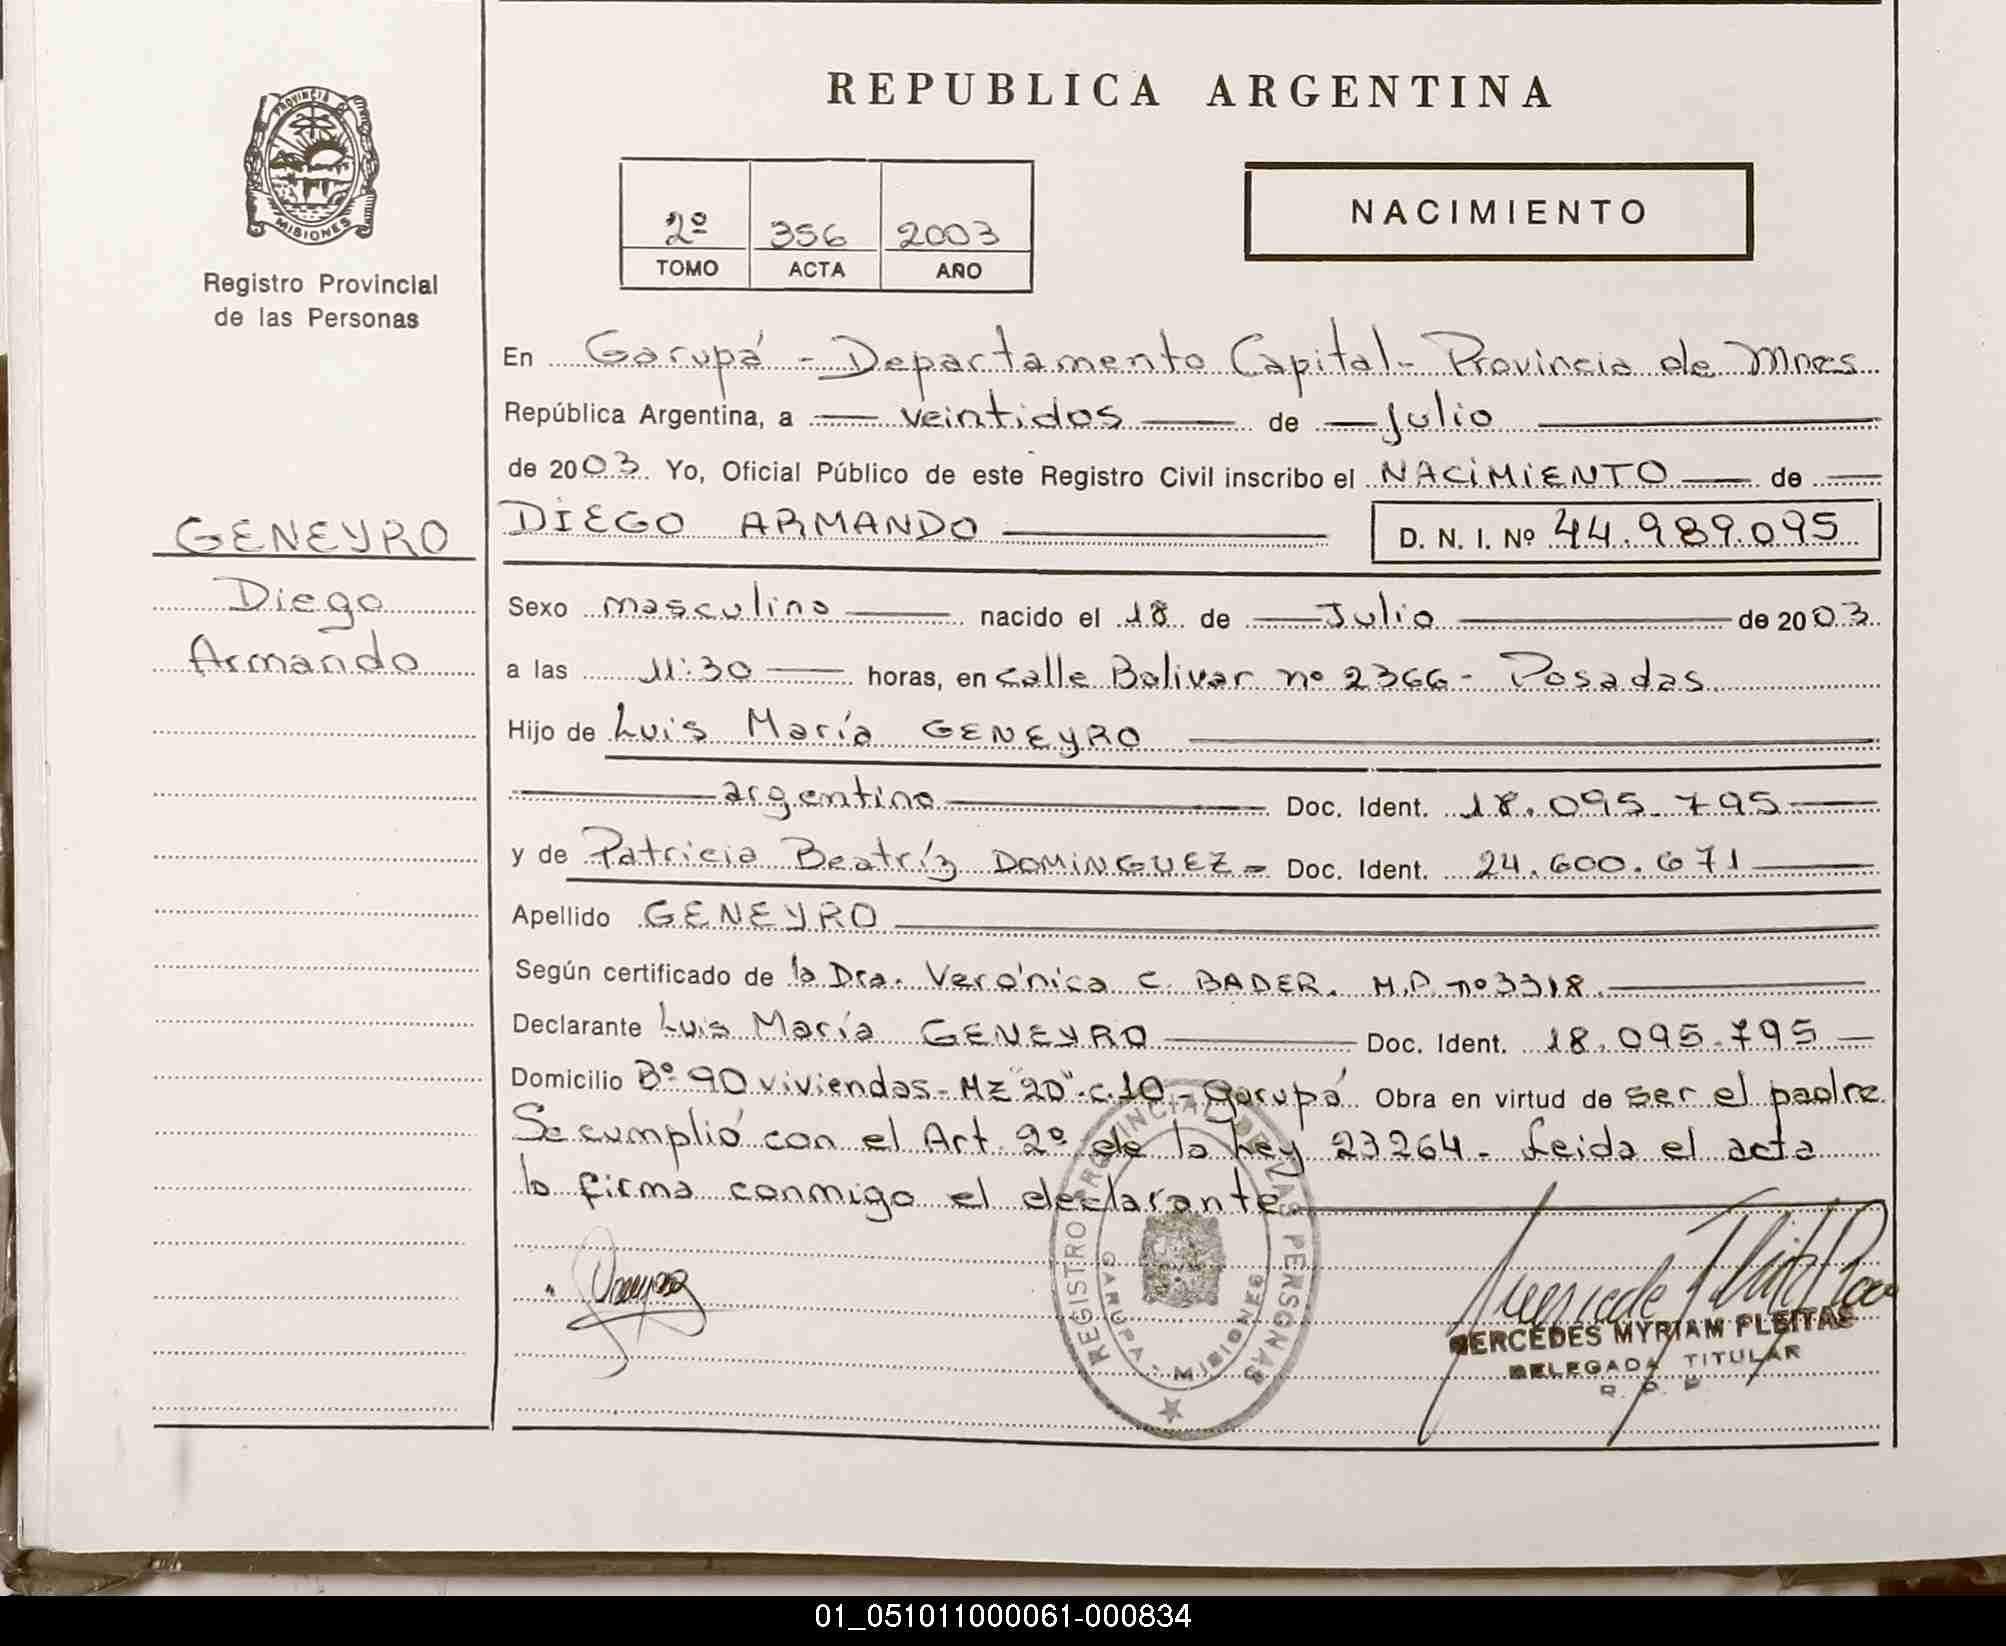 REPUBLICA ARGENTINA
PROVINCIA DE
MISIONES
Registro Provincial
de las Personas
2º 356 2003
TOMO ACTA AÑO
NACIMIENTO
En Garupá - Departamento Capital - Provincia de Mnes
República Argentina, a veintidos de Julio
de 2003. Yo, Oficial Público de este Registro Civil inscribo el NACIMIENTO de
GENEYRO
Diego
Armando
DIEGO ARMANDO D. N. I. Nº 44.989.095
Sexo masculino nacido el 18 de Julio de 2003
a las 11:30 horas, en calle Bolivar nº 2366 - Posadas
Hijo de Luis María GENEYRO
argentino Doc. Ident. 18.095.795
y de Patricia Beatríz DOMINGUEZ - Doc. Ident. 24.600.671
Apellido GENEYRO
Según certificado de la Dra. Verónica C. BADER. M.P. nº 3318.
Declarante Luis María GENEYRO Doc. Ident. 18.095.795
Domicilio Bº 90 viviendas - Mz "20" - c. 10 - Garupá Obra en virtud de ser el padre.
Se cumplió con el Art. 2º de la Ley 23264 - Leida el acta
la firma conmigo el declarante.
REGISTRO PROVINCIAL DE LAS PERSONAS
GARUPA - MISIONES
MERCEDES MYRIAM PLEITAS
DELEGADA TITULAR
R. P. P.
01_051011000061-000834